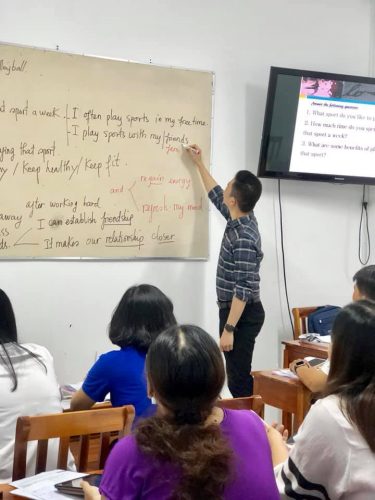 lleyball
sport a week
I often play sports in my free time.
I play sports with my friends
ying that sport
/ Keep healthy / Keep fit.
after working hard
and
regain energy
refresh my mind
away
I can establish friendship
It makes our relationship closer
Answer the following questions:
1. What sport do you like to
2. How much time do you
that sport a week?
3. What are some benefits of
that sport?